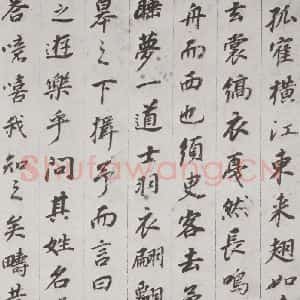 孤隺橫江東来翅如
玄裳縞衣戛然長鳴
舟而西也須臾客去予
睡夢一道士羽衣翩翩
皋之下揖予而言曰
之遊樂乎問其姓名
答嗚嘻我知之矣疇昔
Shufawang.CN